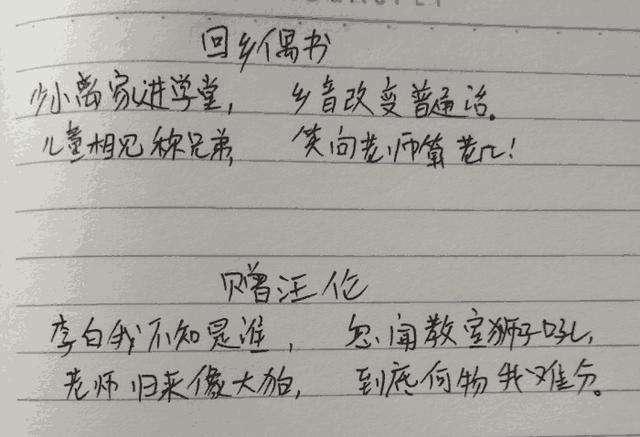 回乡偶书
少小离家进学堂, 乡音改变普通话。
儿童相见称兄弟, 笑问老师第老几!
赠汪伦
李白我不知是谁, 忽闻教室狮子吼,
老师归来像大胎, 到底何物我难分。